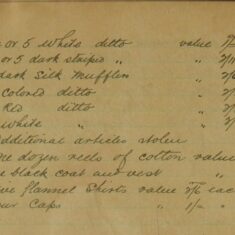 or 5 White ditto value
or 5 dark striped " "
dark Silk Mufflers "
colored ditto "
Red ditto "
white " "
additional articles stolen
ne dozen reels of cotton value
e black coat and vest "
ive flannel Shirts value 2/6 each
our Caps " 1/- "